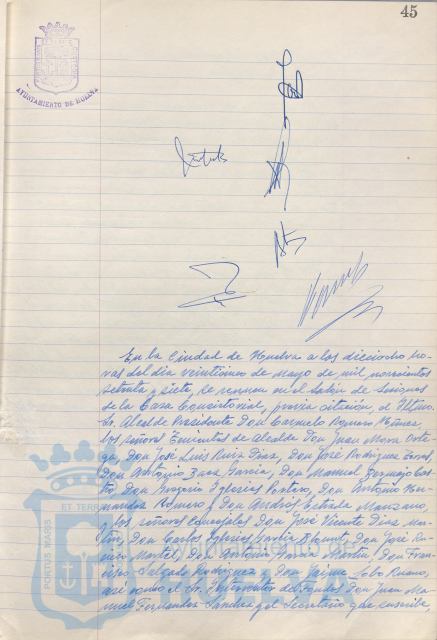 45
AYUNTAMIENTO DE HUELVA
En la Ciudad de Huelva a las dieciocho ho-
ras del día veinticinco de mayo de mil novecientos
setenta y siete, se reunen en el Salón de Sesiones
de la Casa Consistorial, previa citación, el Iltmo.
Sr. Alcalde Presidente Don Carmelo Romero Núñez
los señores Tenientes de Alcalde Don Juan Mora Orte-
ga, Don José Luis Ruiz Díaz, Don José Rodríguez
Don Antonio Baea García, Don Manuel Bermejo Cas-
tro, Don Gregorio Iglesias Portero, Don Antonio Her-
nandez Romero, Don Andrés Estrada Manzano,
y los señores Concejales Don José Vicente Díaz Mar-
tín, Don Carlos Iglesias García Don José Ru-
Martel, Don Antonio Don Fran-
cisco Salgado Rodríguez y Don Jaime Lobo Ruano,
así como el Sr. Interventor de Fondos Don Juan Ma-
nuel Fernández Sánchez y el Secretario que suscribe,
PORTUS MARIS
ET TERRA